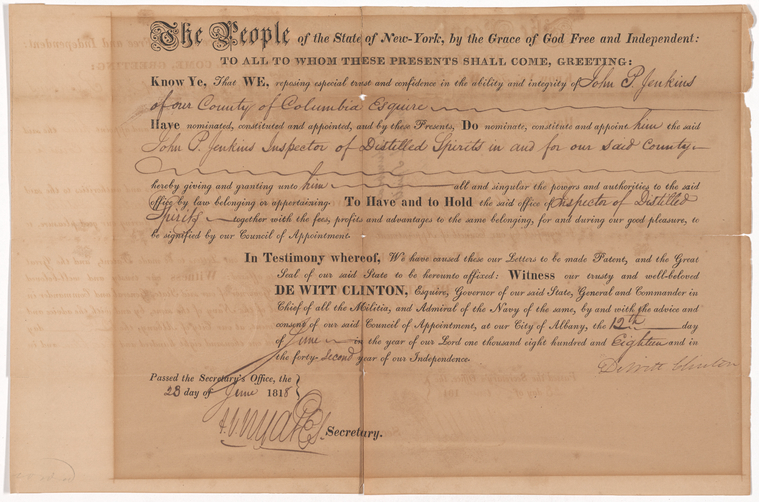 The People of the State of New-York, by the Grace of God Free and Independent:
TO ALL TO WHOM THESE PRESENTS SHALL COME, GREETING:
Know Ye, That WE, reposing especial trust and confidence in the ability and integrity of John P. Jenkins
of our County of Columbia Esquire
Have nominated, constituted and appointed, and by these Presents, Do nominate, constitute and appoint him the said
John P. Jenkins Inspector of Distilled Spirits in and for our said County
hereby giving and granting unto him all and singular the powers and authorities to the said
office by law belonging or appertaining: To Have and to Hold the said office of Inspector of Distilled
Spirits together with the fees, profits and advantages to the same belonging, for and during our good pleasure, to
be signified by our Council of Appointment.
In Testimony whereof, We have caused these our Letters to be made Patent, and the Great
Seal of our said State to be hereunto affixed: Witness our trusty and well-beloved
DE WITT CLINTON, Esquire, Governor of our said State, General and Commander in
Chief of all the Militia, and Admiral of the Navy of the same, by and with the advice and
consent of our said Council of Appointment, at our City of Albany, the 12th day
of June in the year of our Lord one thousand eight hundred and Eighteen and in
the forty-second year of our Independence.
DeWitt Clinton
Passed the Secretary's Office, the
23 day of June 1818
Secretary.